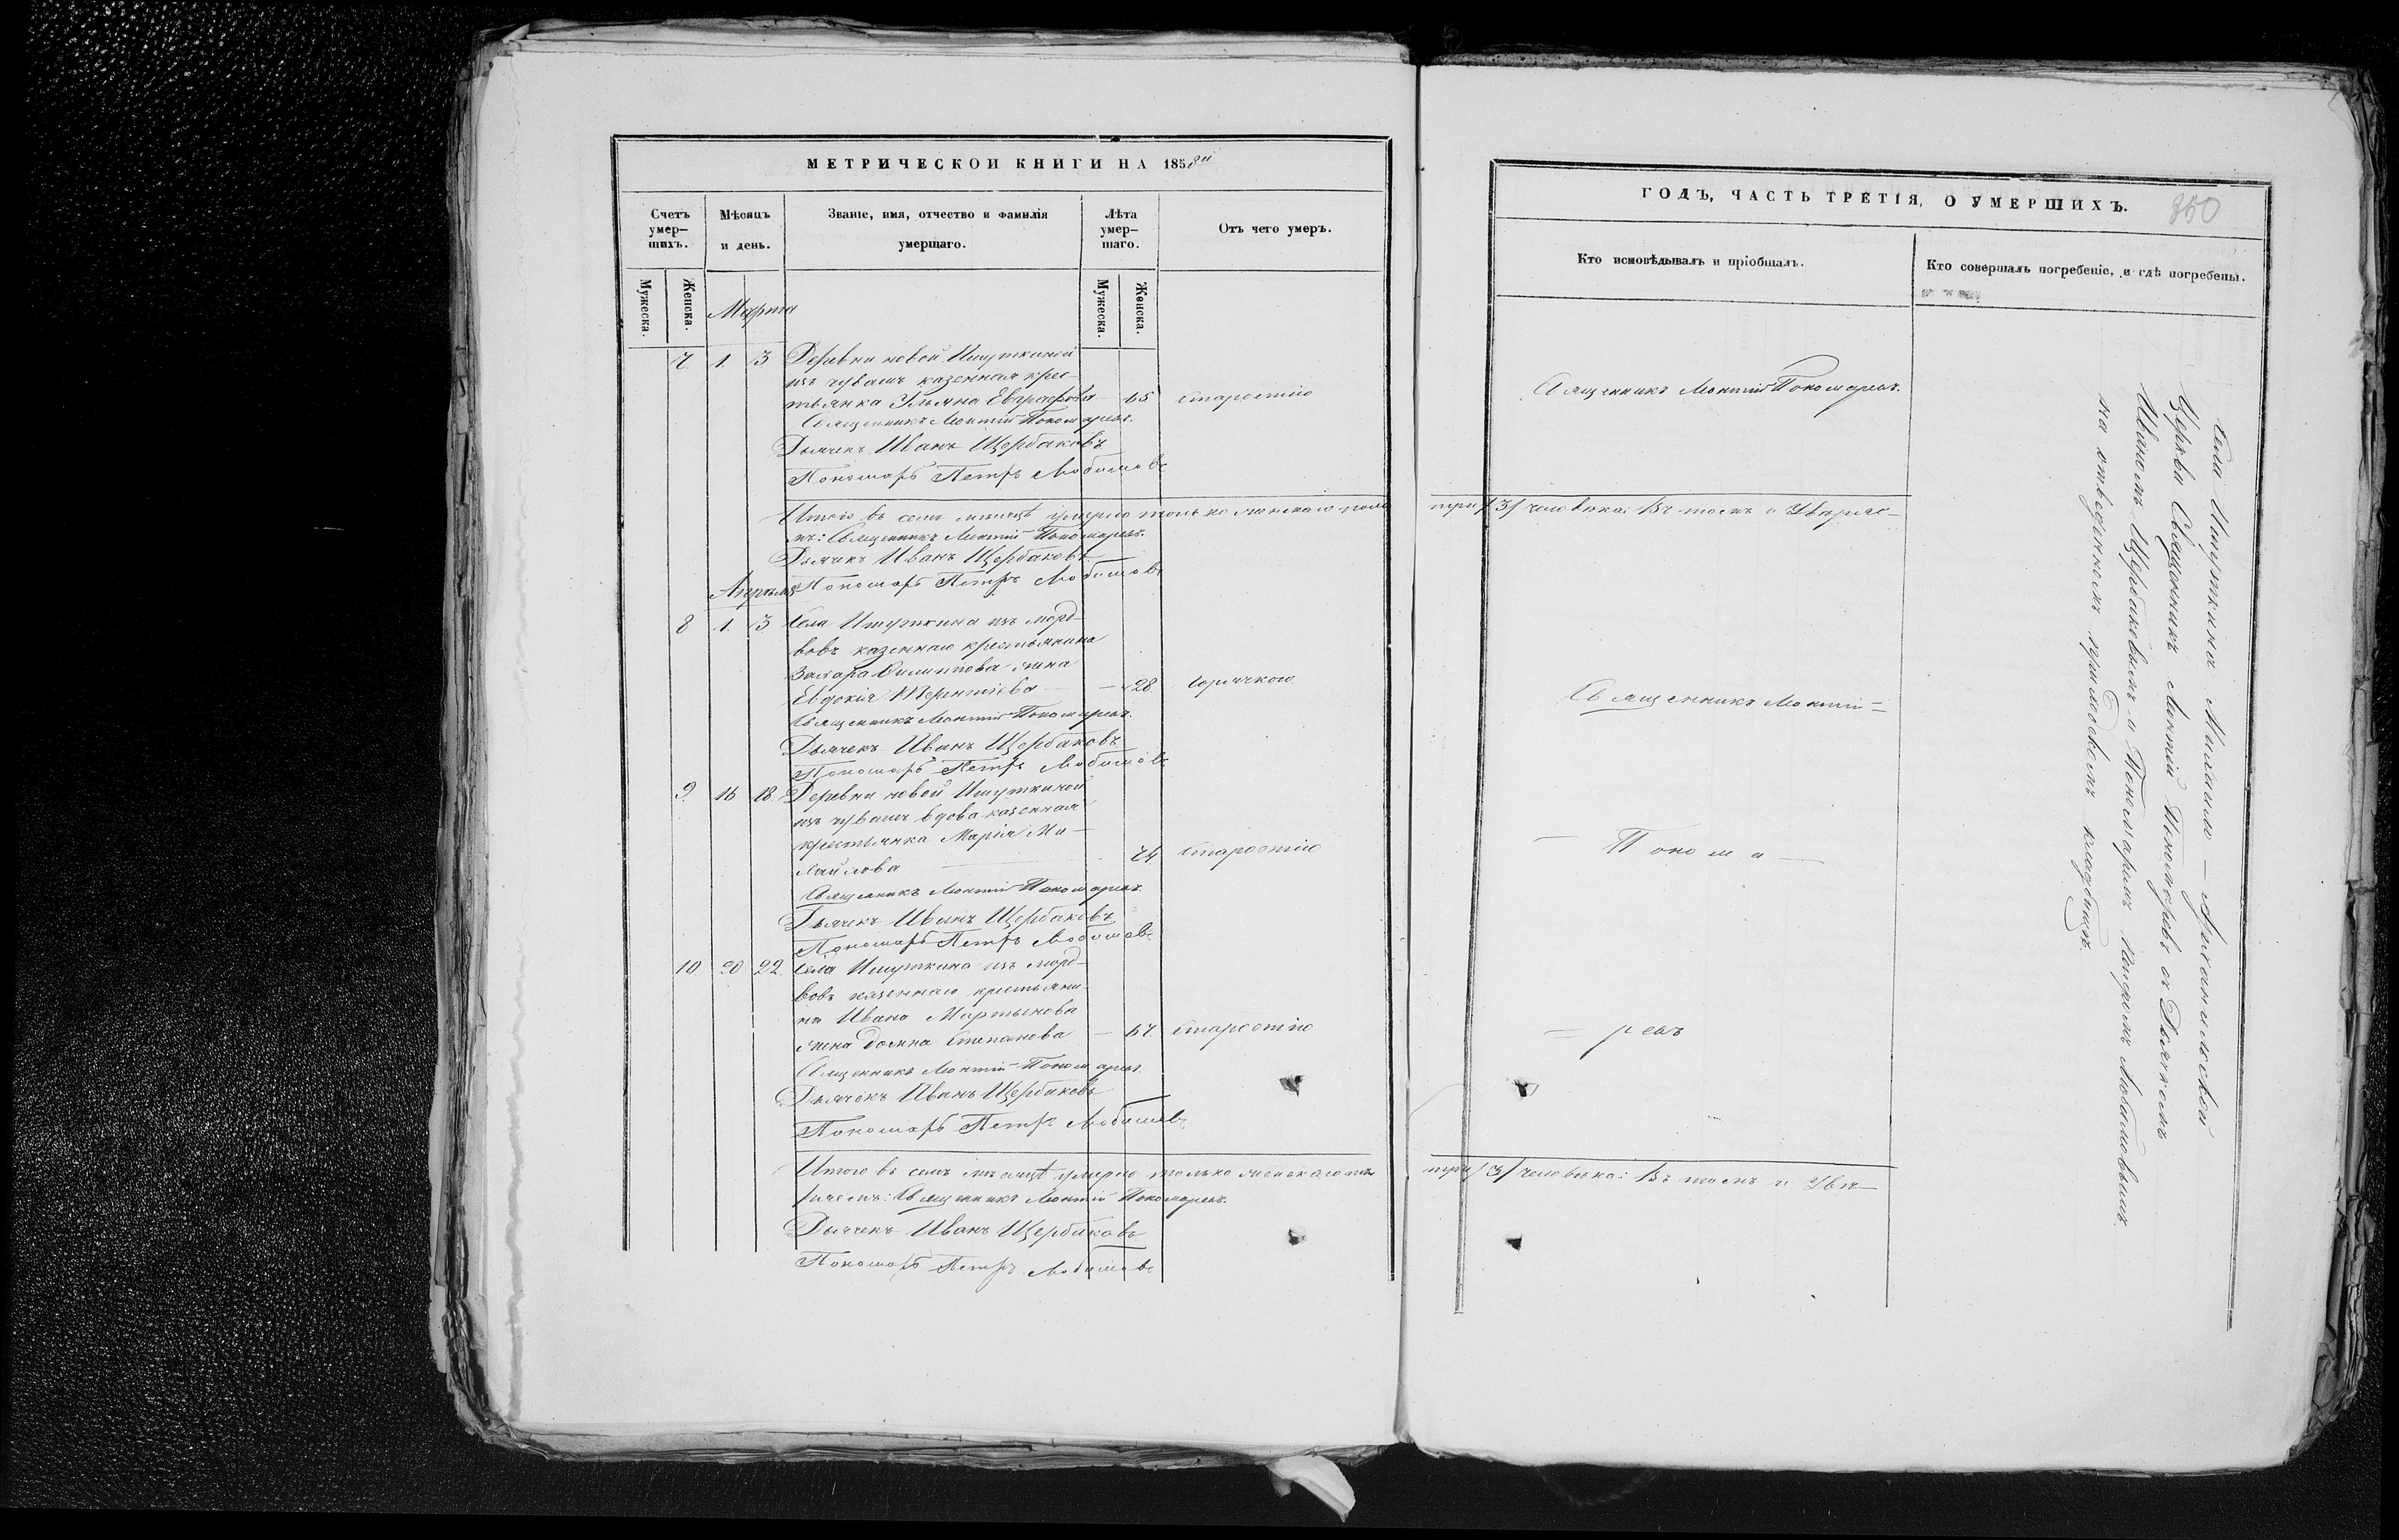 МЕТРИЧЕСКОЙ КНИГИ НА 1858й
Счетъ умер-шихъ.
Мѣсяцъ и день.
Званіе, имя, отчество и фамилія умершаго.
Лѣта умер-шаго.
Отъ чего умеръ.
Мужеска.
Женска.
Мужеска.
Женска.
Марта
7. 1. 3 Деревни новой Ишуткиной
изъ чувашъ казенная крес-
тьянка Ульяна Евграфова 65 старостію
Священникъ Леонтій Пономаревъ.
Дьячекъ Иванъ Щербаковъ
Пономарь Петръ Любимовъ
Итого въ семъ мѣсяцѣ умерло только женскаго пола
мъ: Священникъ Леонтій Пономаревъ.
Дьячекъ Иванъ Щербаковъ
Пономарь Петръ Любимовъ
Апрѣля
8 1. 3 Села Ишуткина изъ морд-
вовъ казеннаго крестьянина
Захара Филиппова жена
Евдокія Терентіева 28 горячкою
Священникъ Леонтій Пономаревъ.
Дьячекъ Иванъ Щербаковъ
Пономарь Петръ Любимовъ
9. 16 18. Деревни новой Ишуткиной
изъ чувашъ вдова казенная
крестьянка Марія Ми-
хайлова 74 старостію
Священникъ Леонтій Пономаревъ.
Дьячекъ Иванъ Щербаковъ
Пономарь Петръ Любимовъ
10 20 22 Села Ишуткина изъ морд-
вовъ казеннаго крестьяни-
на Ивана Мартынова
жена Домна Степанова 67. старостію
Священникъ Леонтій Пономаревъ.
Дьячекъ Иванъ Щербаковъ
Пономарь Петръ Любимовъ
Итого въ семъ мѣсяцѣ умерло только женскаго пола
Священникъ Леонтій Пономаревъ.
Дьячекъ Иванъ Щербаковъ
Пономарь Петръ Любимовъ
ГОДЪ, ЧАСТЬ ТРЕТІЯ, О УМЕРШИХЪ.
850
Кто исповѣдывалъ и пріобщалъ.
Кто совершалъ погребеніе, и гдѣ погребены.
Священникъ Леонтій Пономаревъ.
три /3/ человѣка: Въ томъ и Уверяе-
Священникъ Леонтій =
— Понома —
= ревъ
три /3/ человѣка: Въ томъ и Увѣ-
Села Ишуткина Михаило-Архангельской
Церкви Священникъ Леонтій Пономаревъ съ Дьячкомъ
Иваномъ Щербаковымъ и Пономаремъ Петромъ Любимовымъ
на отведенномъ приходскомъ кладбищѣ.